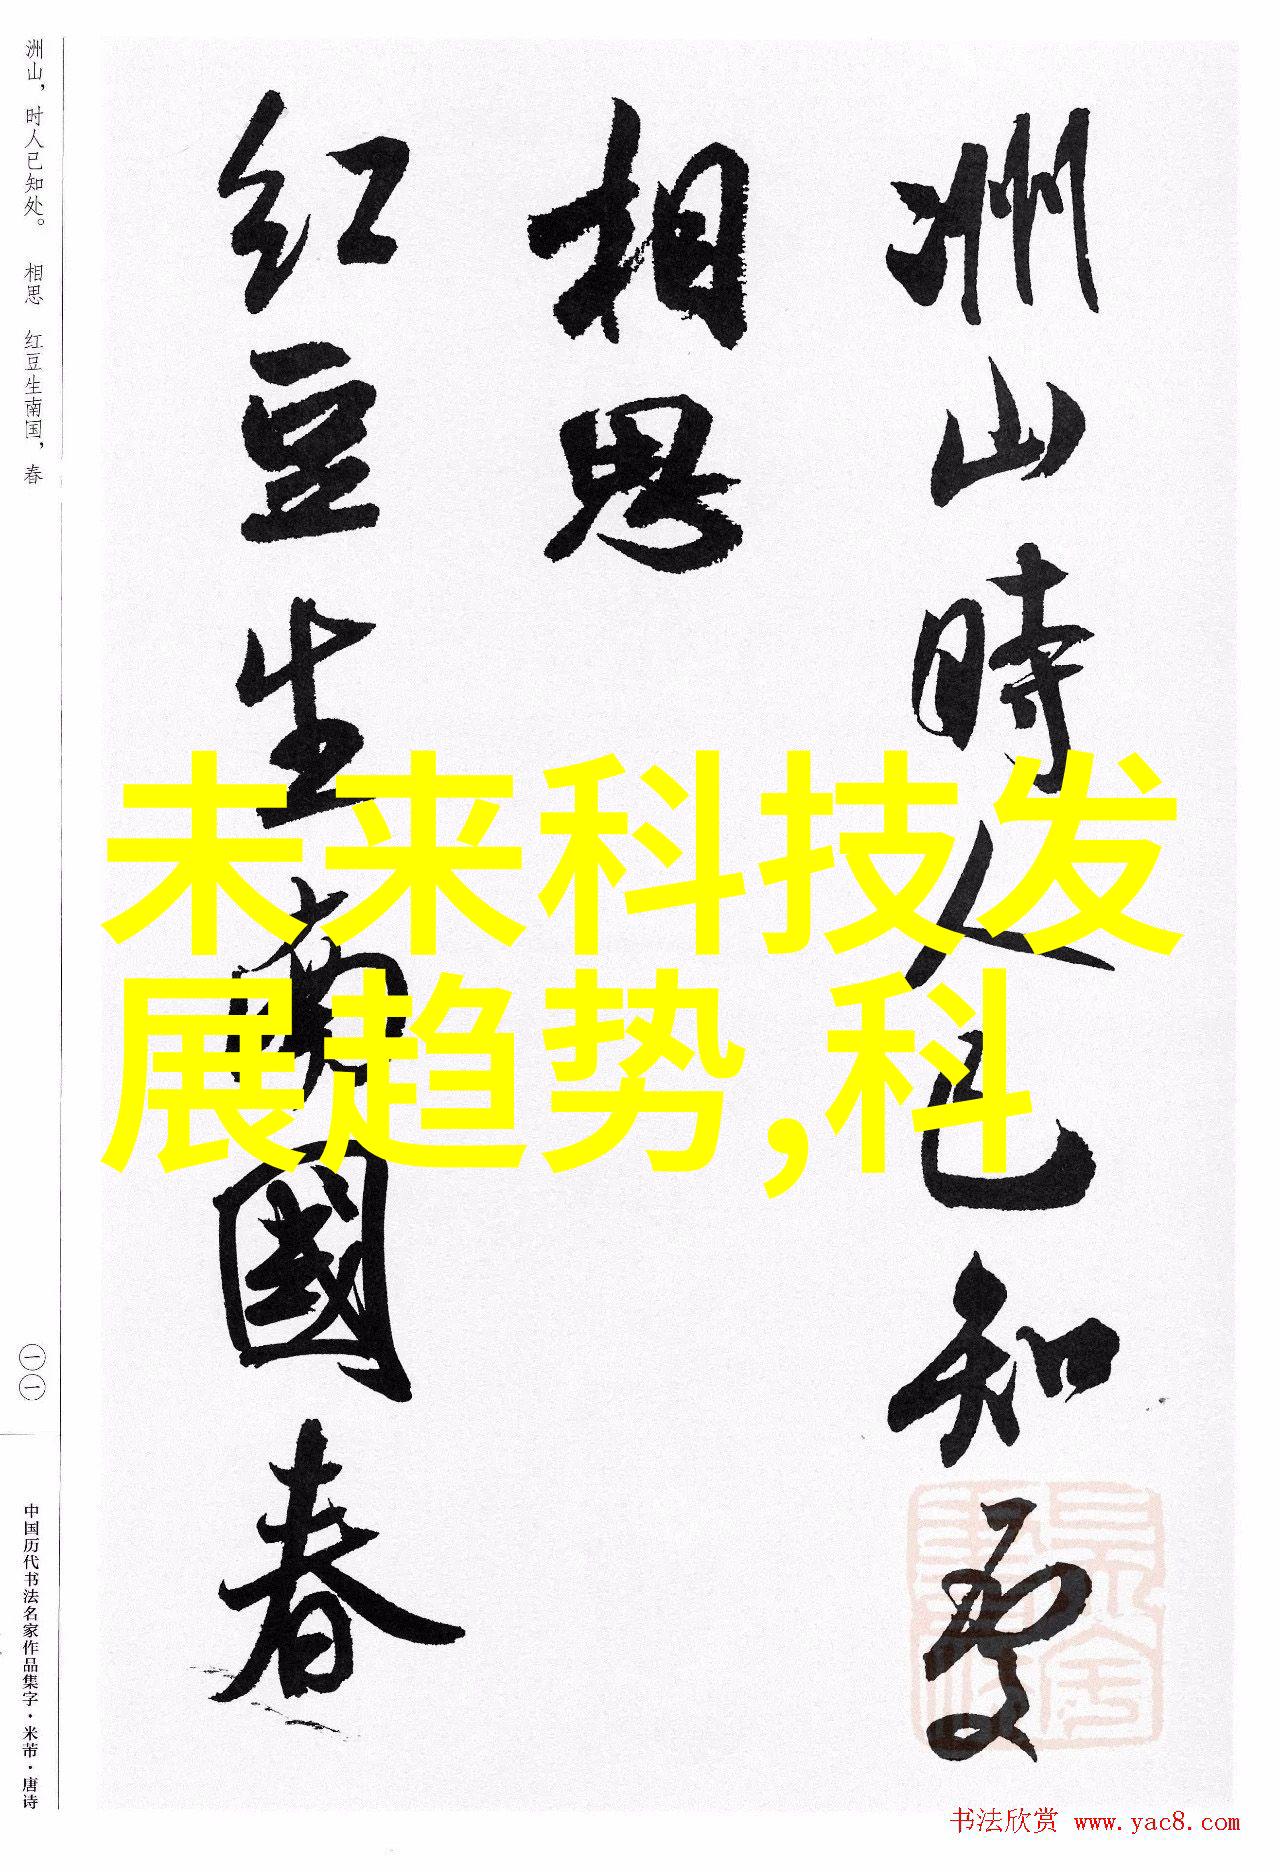 洲山時人已知處
相思
红豆生南國春
洲山，时人已知处。 相思 红豆生南国，春
一一
中国历代书法名家作品集字·米芾·唐诗
未来科技发
展趋势,科
书法欣赏 www.yac8.com